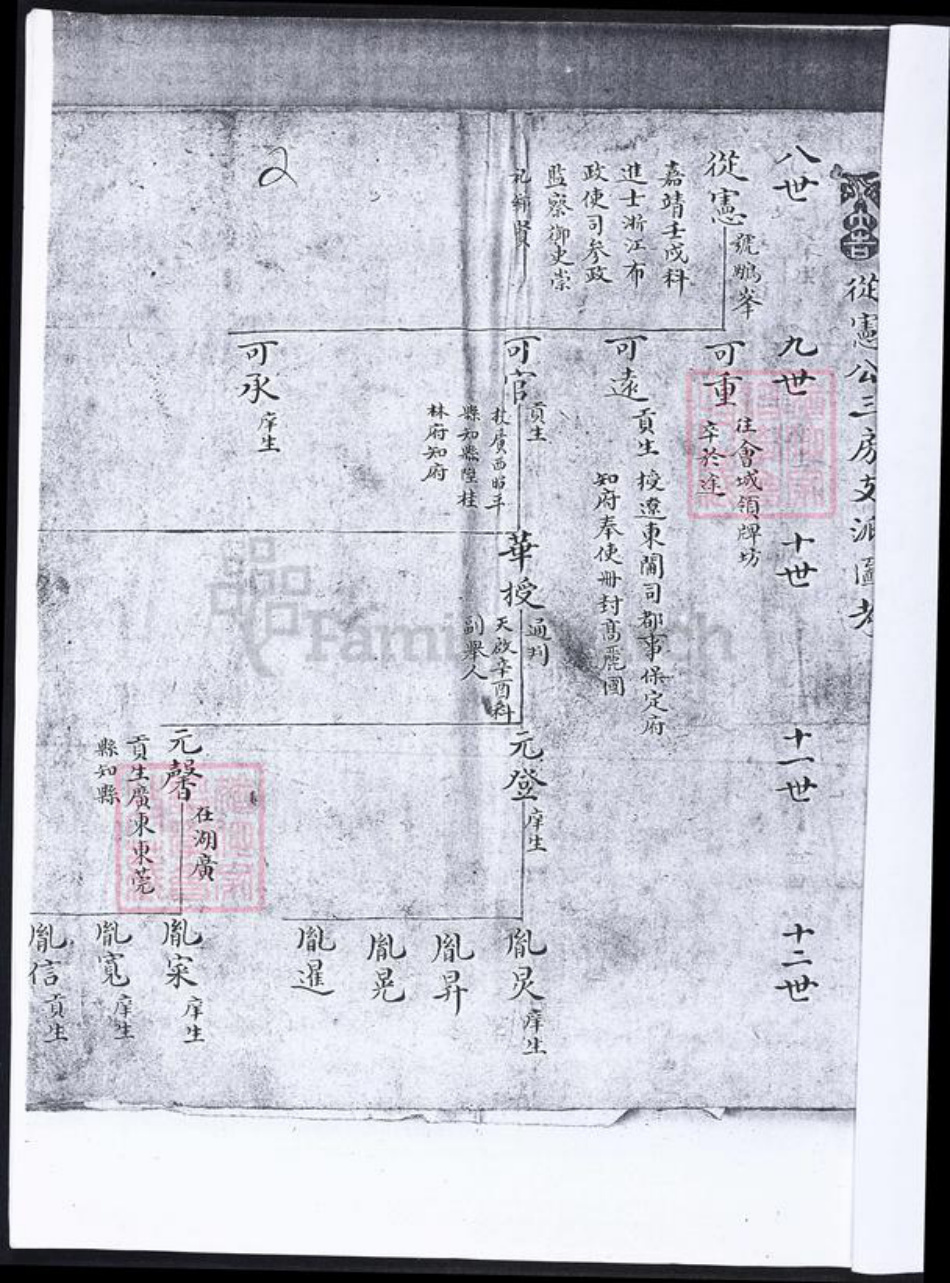 從憲公三房支派圖考
八世
九世
十世
十一世
十二世
從憲
號鵬峯
嘉靖壬戌科
進士浙江布
政使司参政
監察御史崇
祀鄉賢
可重
往會城領牌坊
卒於途
可遠
貢生 授遼東闗司都事保定府
知府奉使册封高麗國
可官
貢生
授廣西昭平
縣知縣陞桂
林府知府
可承
庠生
華授
通判
天啟辛酉科
副舉人
元登
庠生
元馨
在湖廣
貢生廣東東莞
縣知縣
胤炅
庠生
胤昇
胤晃
胤暹
胤寀
庠生
胤寬
庠生
胤信
貢生
2
FamilySearch